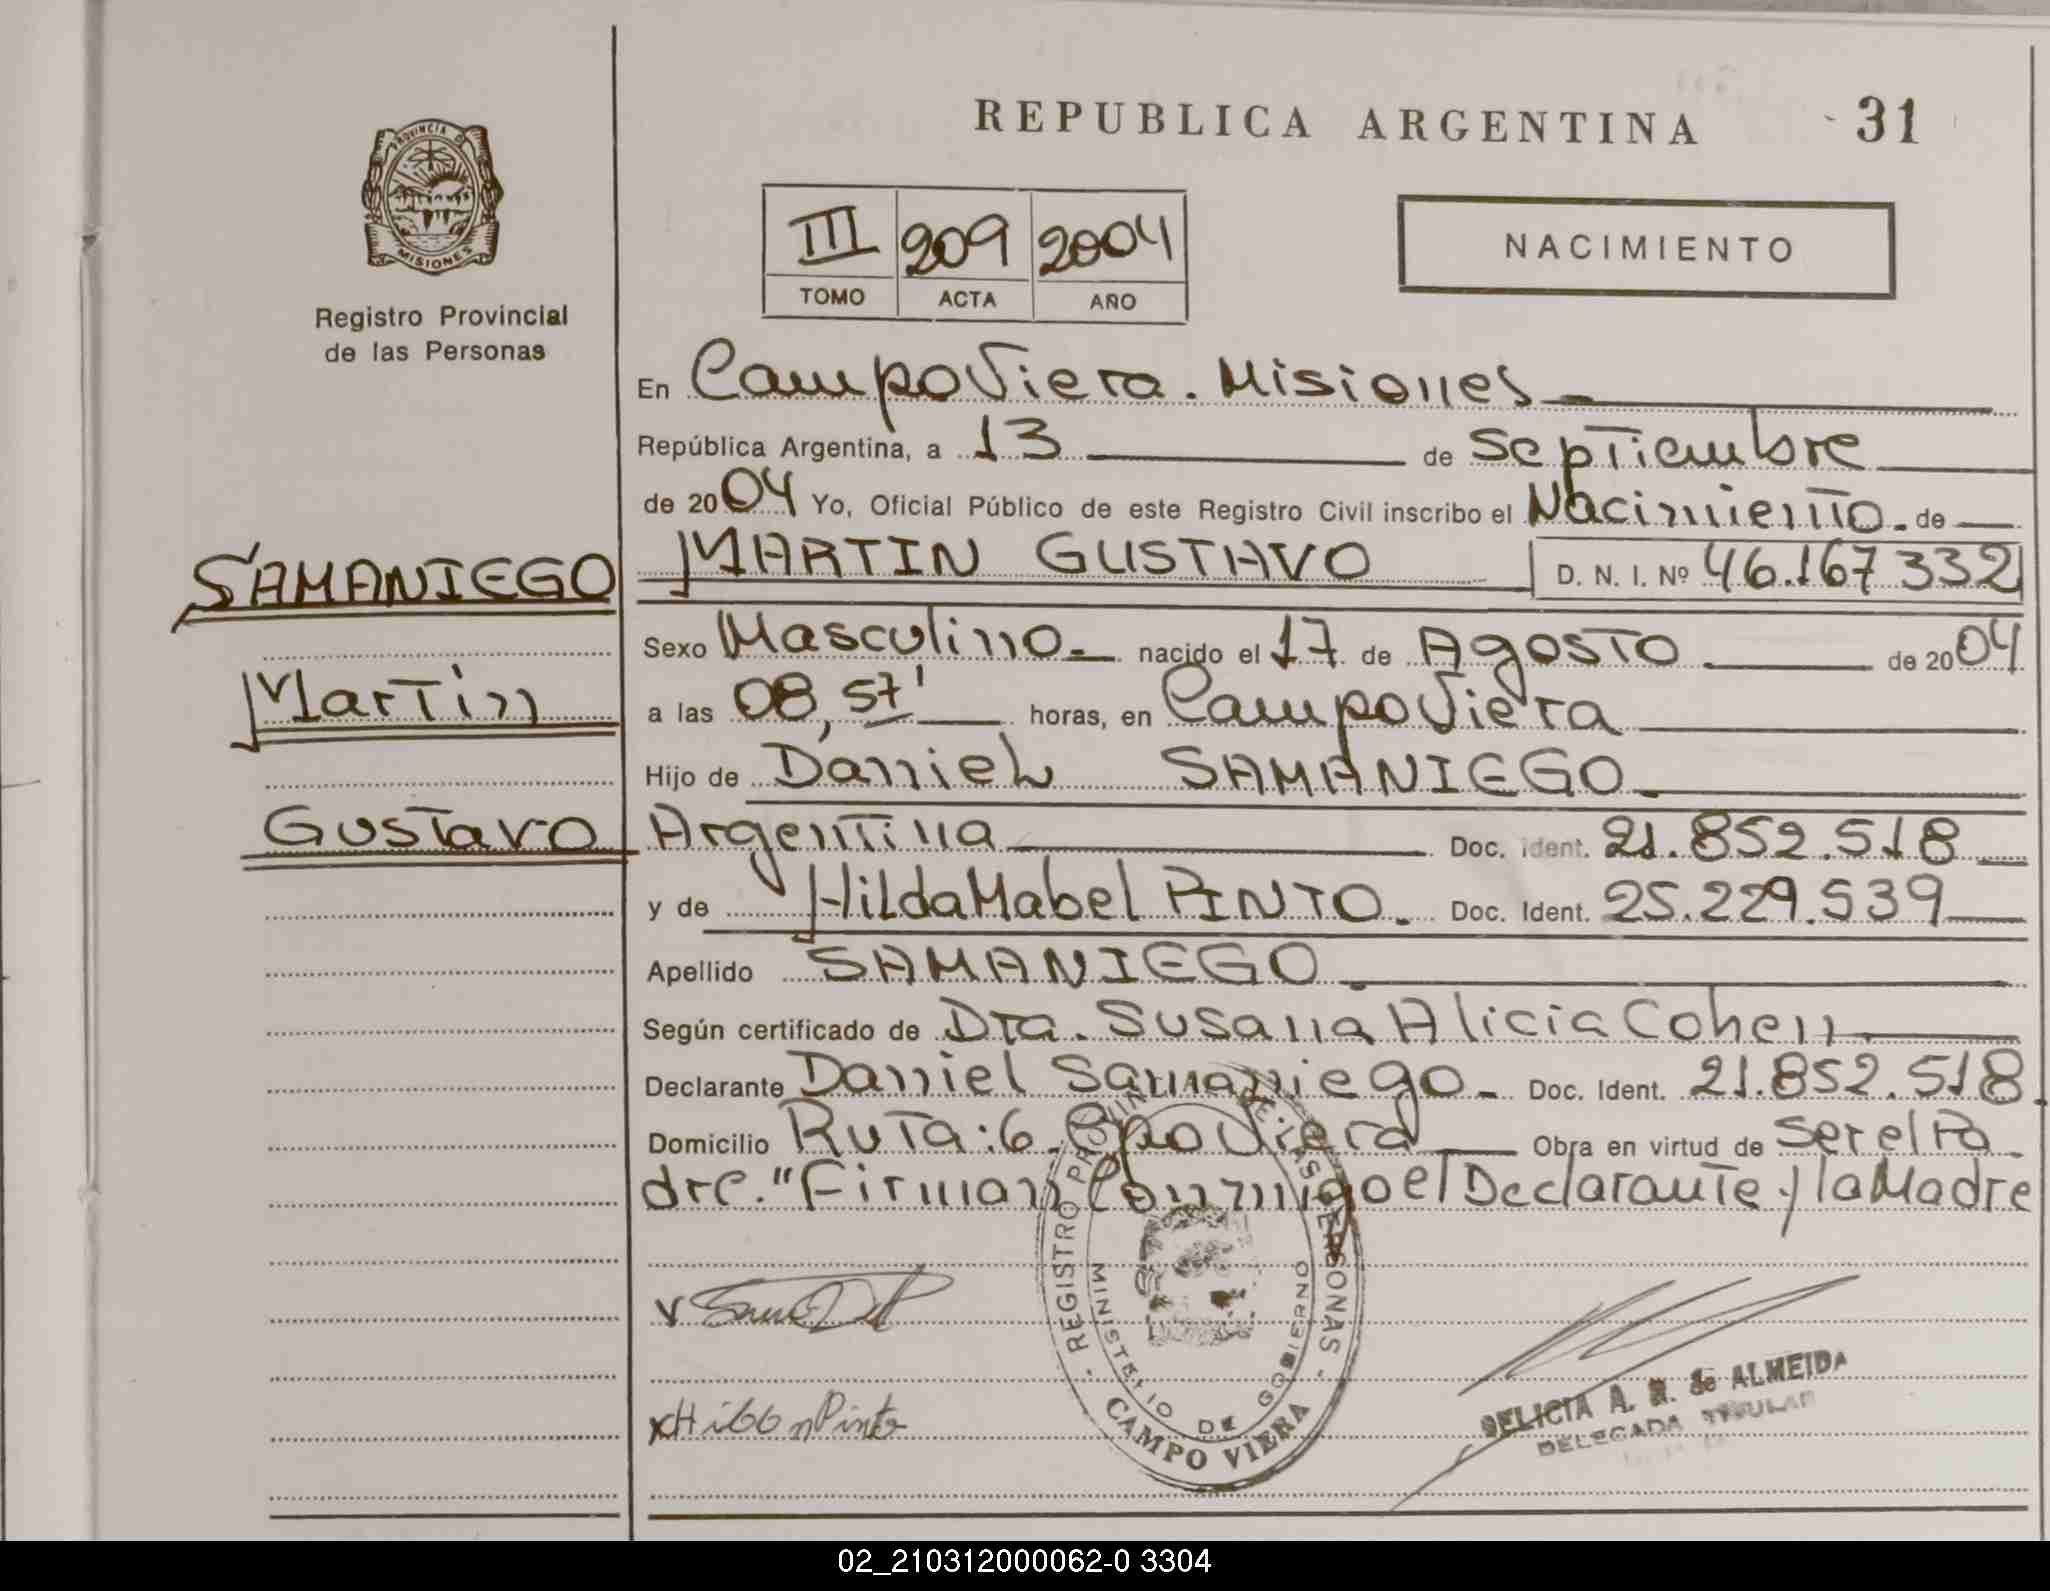 REPUBLICA ARGENTINA 31
PROVINCIA DE
MISIONES
Registro Provincial
de las Personas
III 209 2004
TOMO ACTA AÑO
NACIMIENTO
En Campo Viera. Misiones
República Argentina, a 13 de Septiembre
de 2004 Yo, Oficial Público de este Registro Civil inscribo el Nacimiento. de
SAMANIEGO
Martin
Gustavo
MARTIN GUSTAVO D. N. I. Nº 46.167332
Sexo Masculino. nacido el 17 de Agosto de 2004
a las 08,57' horas, en Campo Viera
Hijo de Daniel SAMANIEGO.
Argentina Doc. Ident. 21.852.518
y de Hilda Mabel PINTO. Doc. Ident. 25.229.539
Apellido SAMANIEGO.
Según certificado de Dra. Susana Alicia Cohen
Declarante Daniel Samaniego. Doc. Ident. 21.852.518.
Domicilio Ruta:6. Cpo Viera Obra en virtud de ser el Pa
dre." Firman Conmigo el Declarante y la Madre
REGISTRO PROVINCIAL DE LAS PERSONAS
MINISTERIO DE GOBIERNO
CAMPO VIERA
DELICIA A. R. de ALMEIDA
DELEGADA TITULAR
02_210312000062-0 3304